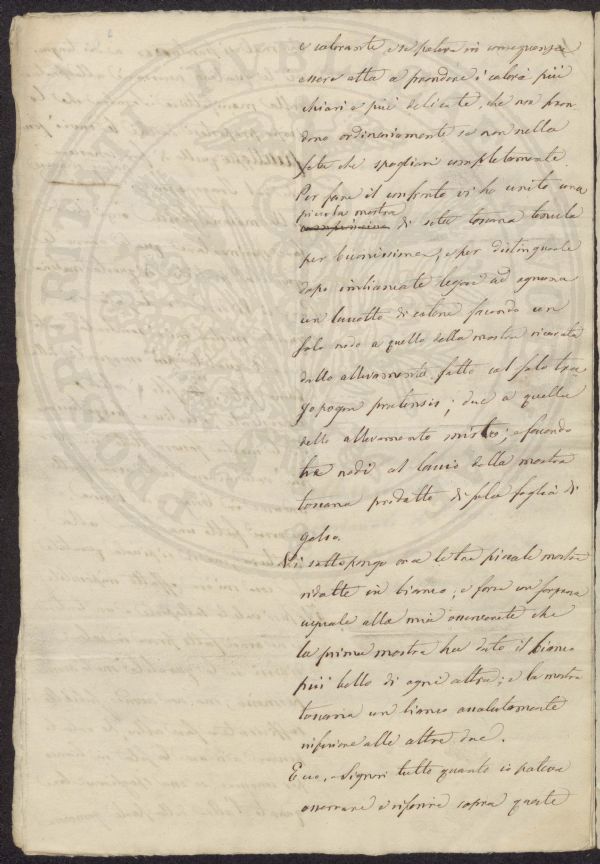 e colorante, e si poteva in conseguenza
essere atta a prendere i colori più
chiari e più delicati, che non pren
dono ordinariamente se non nella
seta che spogliasi completamente.
Per fare il confronto vi ho unito una
piccola mostra
di seta toscana tenuta
per buonissima, e per distinguerle
dopo imbiancate legare ad ognuna
un laccetto di colore facendo un
solo nodo a quello della mostra ricavata
dallo allevamento fatto col solo tra
gopogon pratensis; due a quella
dello allevamento misto; e facendo
tre nodi al laccio della mostra
toscana prodotto di sola foglia di
gelso.
Vi sottopongo ora le tre piccole mostre
ridotte in bianco; e forse con sorpresa
uguale alla mia osserverete che
la prima mostra ha dato il bianco
più bello di ogni altra; e la mostra
toscana un bianco assolutamente
inferiore alle altre due.
Ecco, o Signori tutto quanto io poteva
osservare e riferire sopra queste